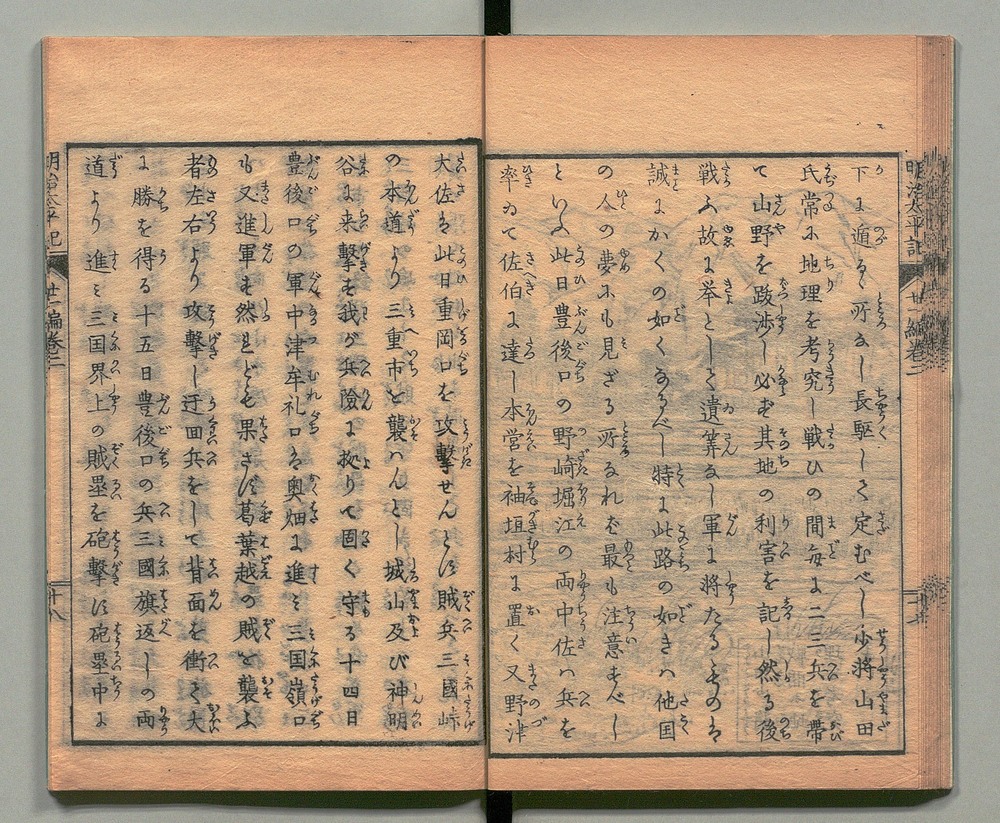 下に遁るゝ所なし長駆して定むべし少将山田
氏常に地理を考究し戦ひの間毎に二三兵を帯
て山野を跋渉し必ず其地の利害を記し然る後
戦ふ故に挙として遺筭なし軍に将たるものは
誠にかくの如くなるべし特に此路の如きハ他国
の人の夢にも見ざる所なれば最も注意すべし
といふ此日豊後口の野崎堀江の両中佐ハ兵を
率ゐて佐伯に達し本営を袖垣村に置く又野津
大佐は此日重岡口を攻撃せんとす賊兵三國峠
の本道より三重市を襲ハんとし城山及び神明
谷に来撃す我が兵險に拠りて固く守る十四日
豊後口の軍中津牟礼口は奥畑に進ミ三国嶺口
も又進軍す然れども果さず葛葉越の賊を襲ふ
者左右より攻撃し迂回兵をして背面を衝く大
に勝を得る十五日豊後口の兵三國旗返しの両
道より進ミ三国界上の賊塁を砲撃す砲塁中に
明治太平記
廿一編巻二
十八